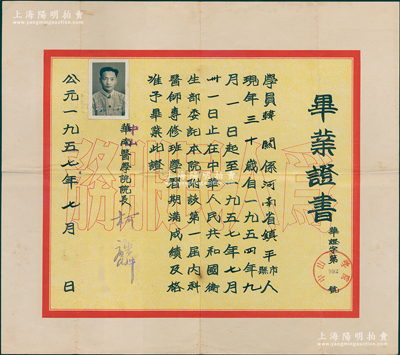 上海陽明拍賣
畢業證書
華證字第
號
學員韓 關係河南省鎮平市縣人
現年三十歲自一九五四年九
月一日起至一九五七年七月
卅一日止在中華人民共和國衛
生部委託本院附設第一屆內科
醫師專修班學習期滿成績及格
准予畢業此證
中山
華南醫學院院長 柯麟
公元一九五七年七月 日
為人民服務
上海陽明拍賣